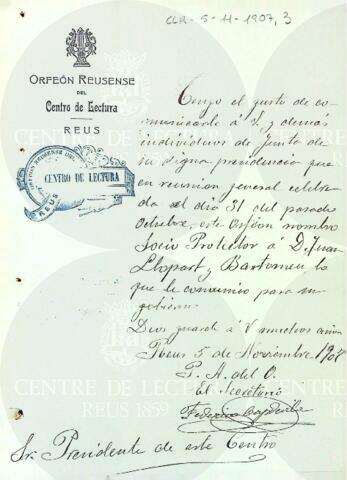 CLR-5-11-1907, 3
ORFEÓN REUSENSE
DEL
Centro de Lectura
REUS
ORFEÓN REUSENSE DEL
CENTRO DE LECTURA
REUS
Tengo el gusto de co-
municarle á V. y demás
individuos de Junta de
su digna presidencia que
en reunion general celebra-
da el dia 31 del pasado
Octubre, este Orfeón nombró
Socio Protector á D. Juan
Llopart y Bartomeu lo
que le comunico para su
gobierno.
Dios guarde á V muchos años
Reus 5 de Noviembre 1907
P. A. del O.
El Secretario
Federico Capdevila
Sr. Presidente de este Centro
CENTRE DE LECTURA
REUS 1859